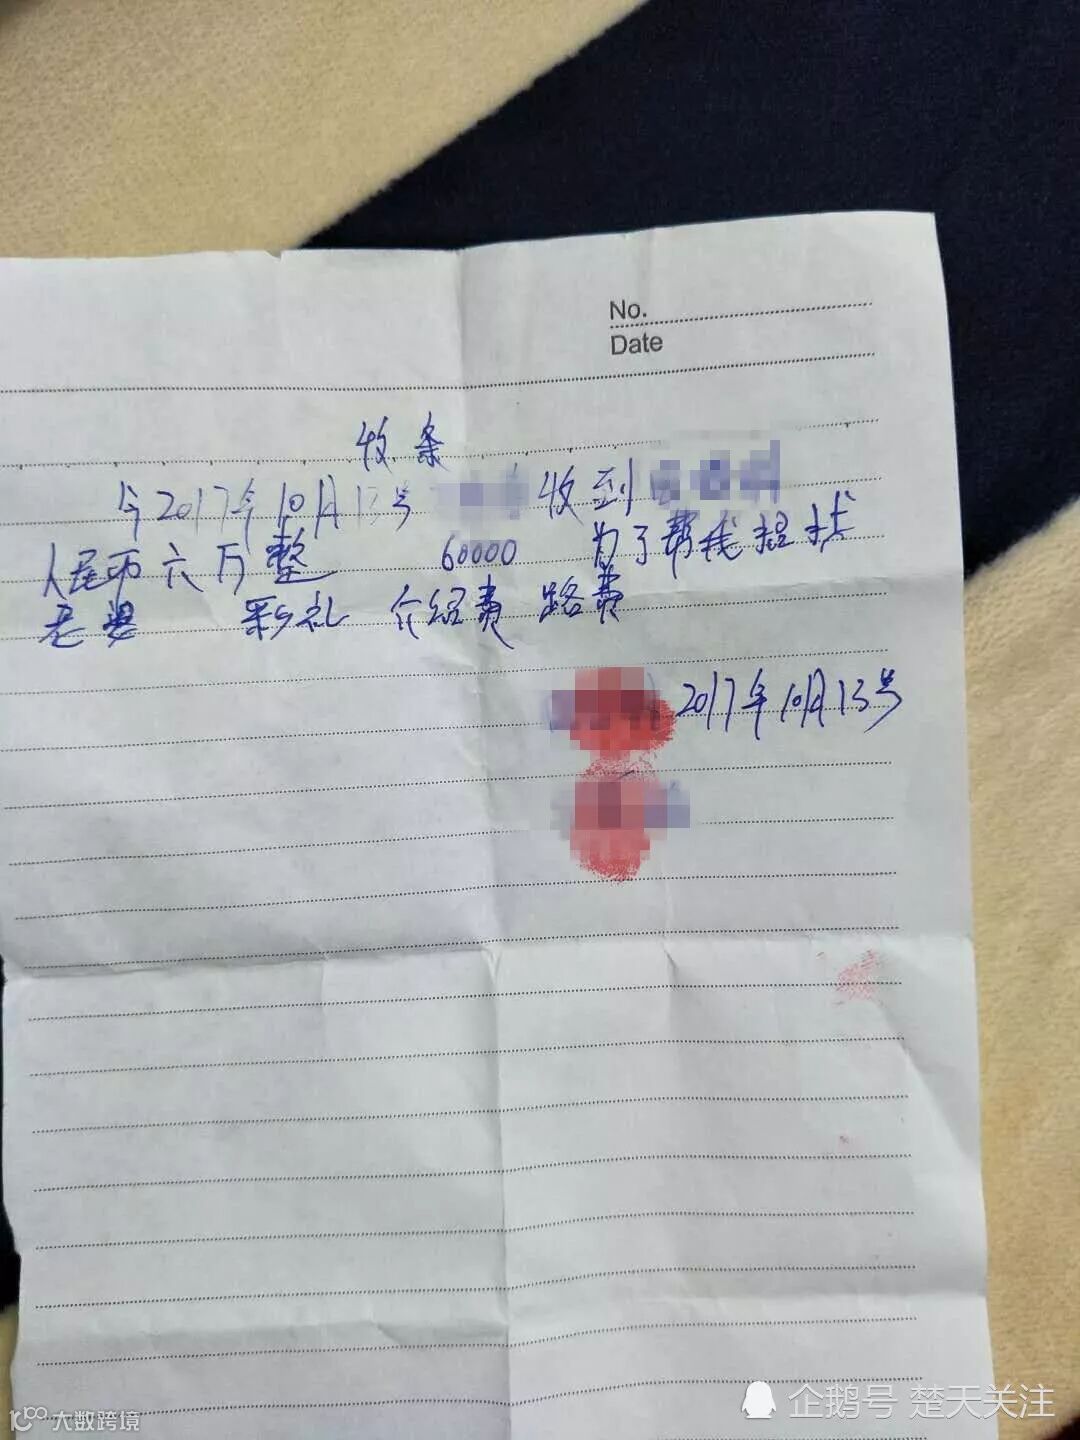 No.
Date
收条
今2017年10月13号 收到
人民币六万整 60000 为了帮我找
老婆 彩礼 介绍费 路费
2017年10月13号
企鹅号 楚天关注
大数跨境